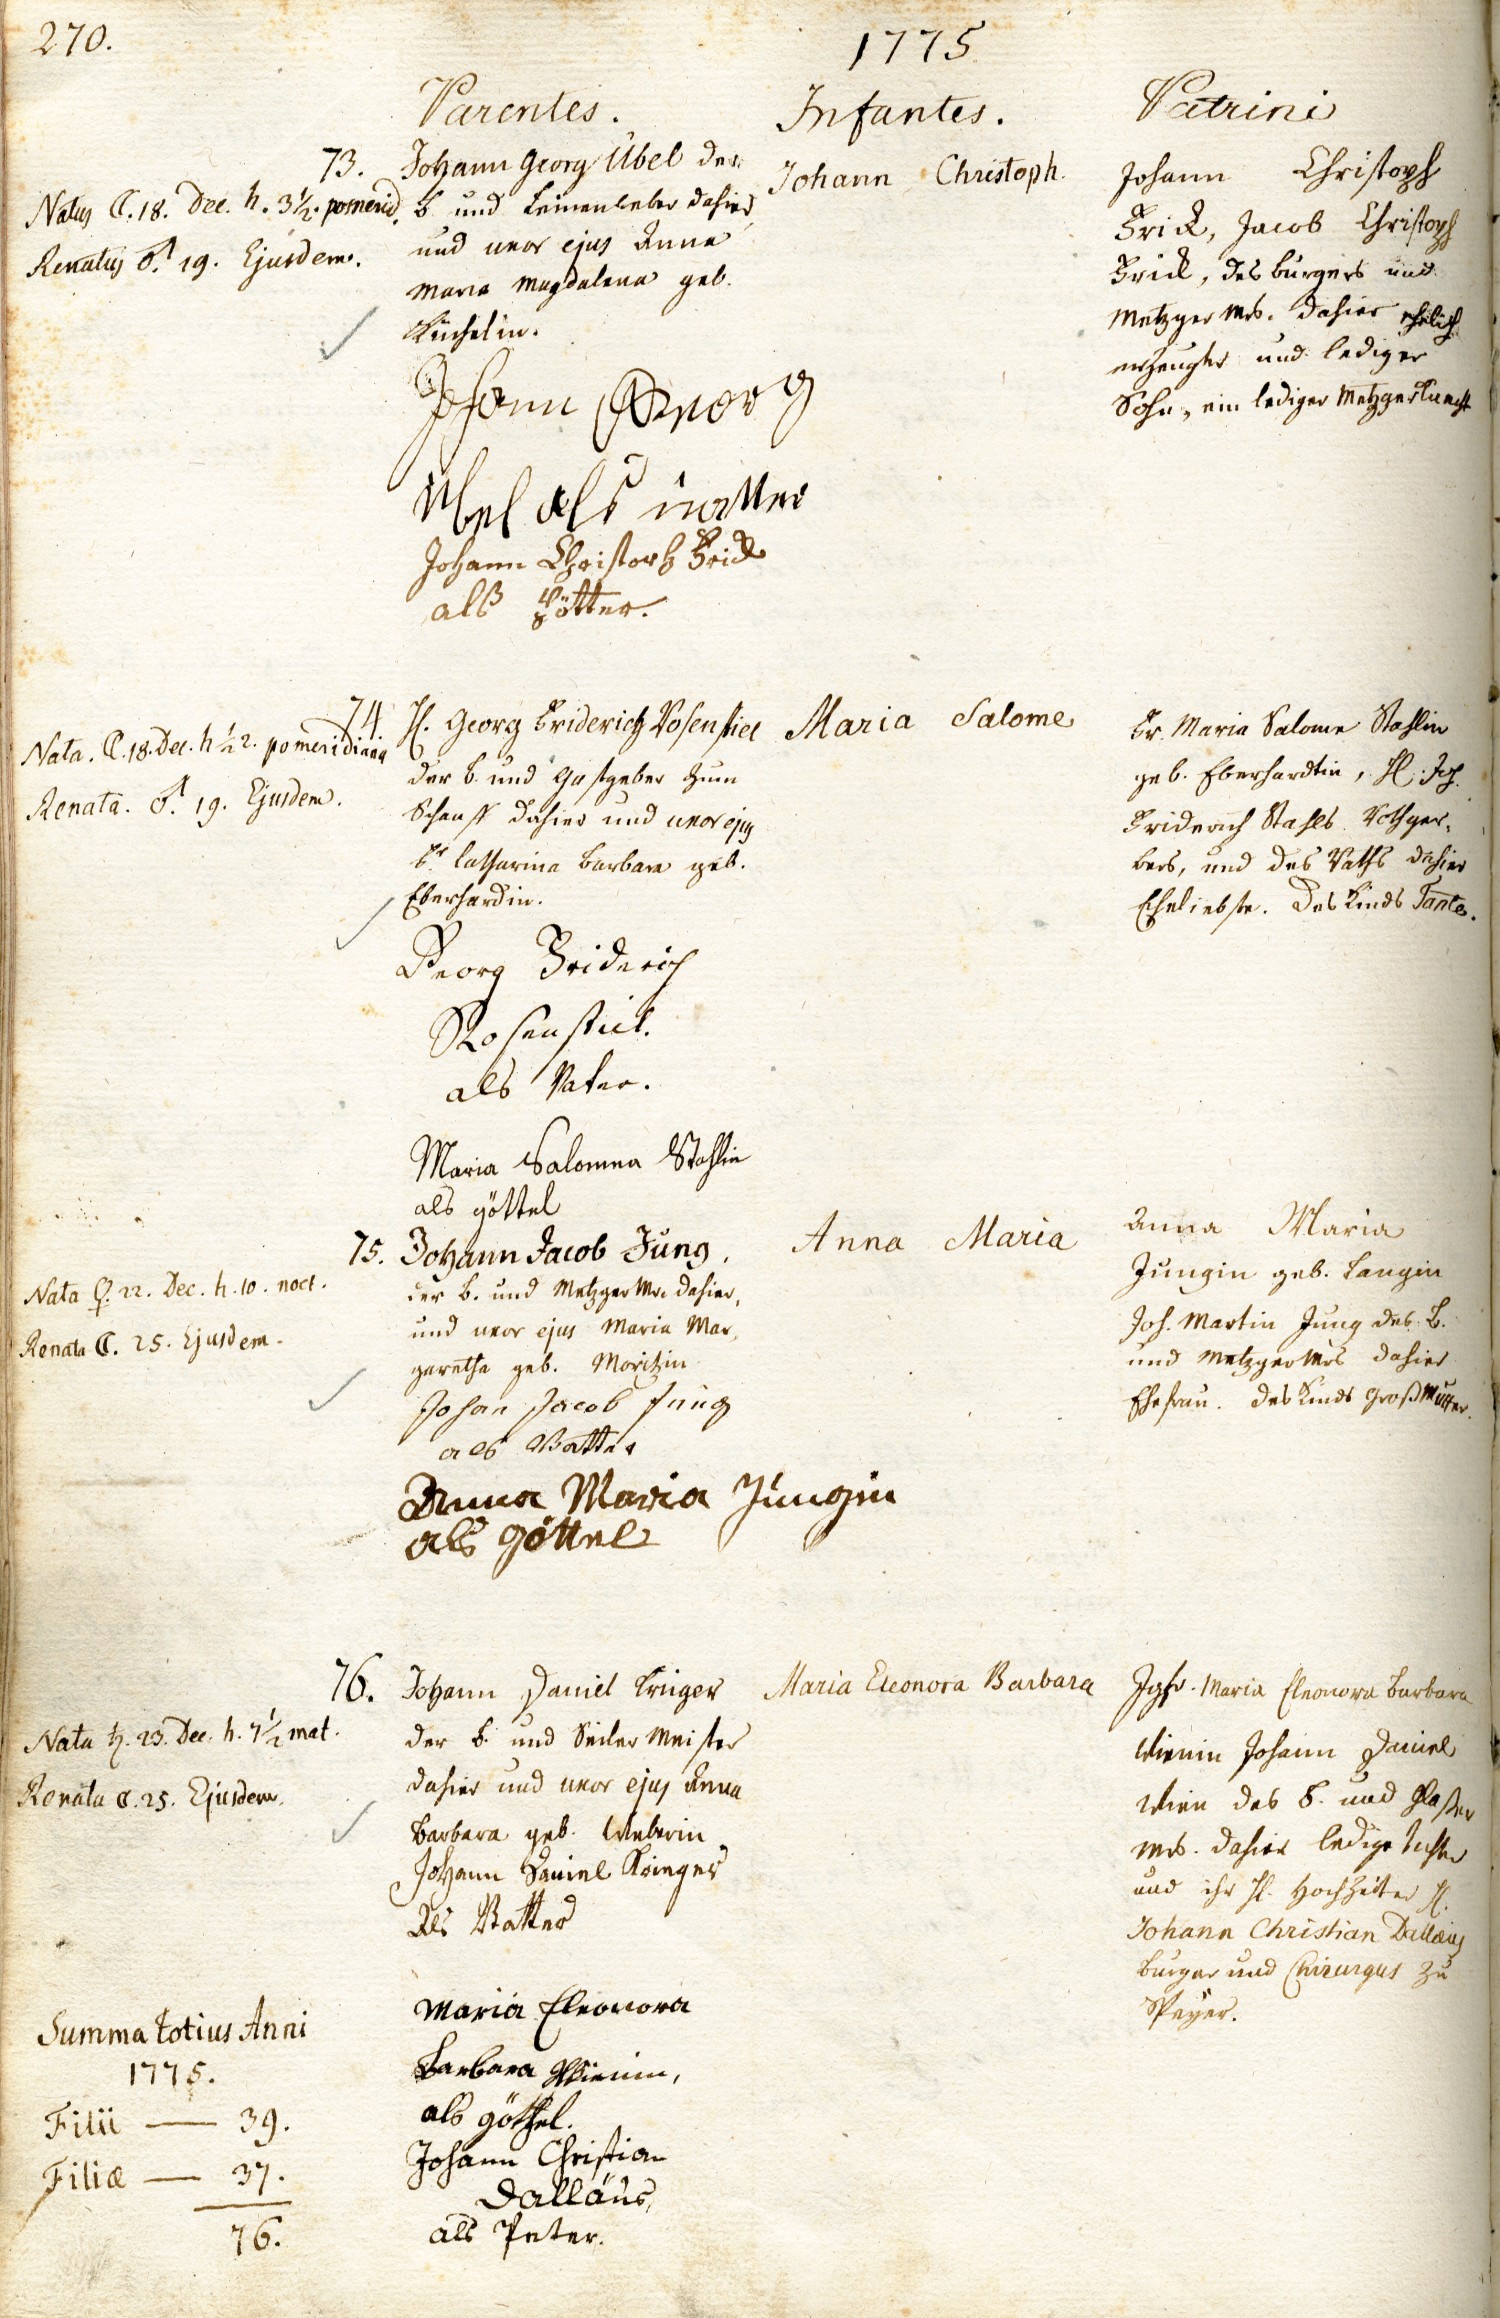 270.
1775
Parentes.
Infantes.
Patrini
73.
Natus ☾. 18. Dec. h. 3½. pomerid.
Renatus ♂. 19. Ejusdem.
Johann Georg Übel der
b. und Leinenweber dahier
und uxor ejus Anna
Maria Magdalena geb.
Küchelin.
Johann Georg
Übel als vatter
Johann Christoph Frick
als Pötter.
Johann Christoph.
Johann Christoph
Frick, Jacob Christoph
Frick, des burgers und
Metzger Mrs. dahier ehelich
erzeugter und lediger
Sohn, ein lediger Metzgerknecht
74
Nata. ☾. 18. Dec. h ½ 2. pomeridiana
Renata. ♂. 19. Ejusdem.
H. Georg Friderich Rosenstiel
der b. und Gastgeber zum
Schaaff dahier und uxor ejus
Fr. Catharina Barbara geb.
Eberhardin.
Georg Friderich
Rosenstiel.
als Vater.
Maria Salomea Stahlin
als göttel
Maria Salome
Fr. Maria Salome Stahlin
geb. Eberhardtin, H. Joh.
Friderich Stahls Rothger-
bers, und des Raths dahier
Eheliebste. Des Kinds Tante.
75.
Nata ♀. 22. Dec. h. 10. noct.
Renata ☾. 25. Ejusdem.
Johann Jacob Jung,
der b. und Metzger Mr. dahier,
und uxor ejus Maria Mar-
garetha geb. Moritzin
Johan Jacob Jung
als Vatter
Anna Maria Jungin
als Göttel
Anna Maria
Anna Maria
Jungin geb. Langin
Joh. Martin Jung des b.
und Metzger Mrs dahier
Ehefrau. des Kinds Großmutter.
76.
Nata ♄. 23. Dec. h. 7½ mat.
Renata ☾. 25. Ejusdem.
Johann Daniel Krieger
der b. und Seiler Meister
dahier und uxor ejus Anna
Barbara geb. Weberin
Johann Daniel Krieger
Als Vatter
Maria Eleonora
Barbara Wienin,
als göthel.
Johann Christian
Dalläus,
als Peter.
Maria Eleonora Barbara
Jgfr. Maria Eleonora Barbara
Wienin Johann Daniel
Wien des b. und Glaßer
Mrs. dahier ledige Tochter
und ihr H. Hochzeiter H.
Johann Christian Dallæus
burger und Chirurgus zu
Speyer.
Summa totius Anni
1775.
Filii — 39.
Filiæ — 37.
76.